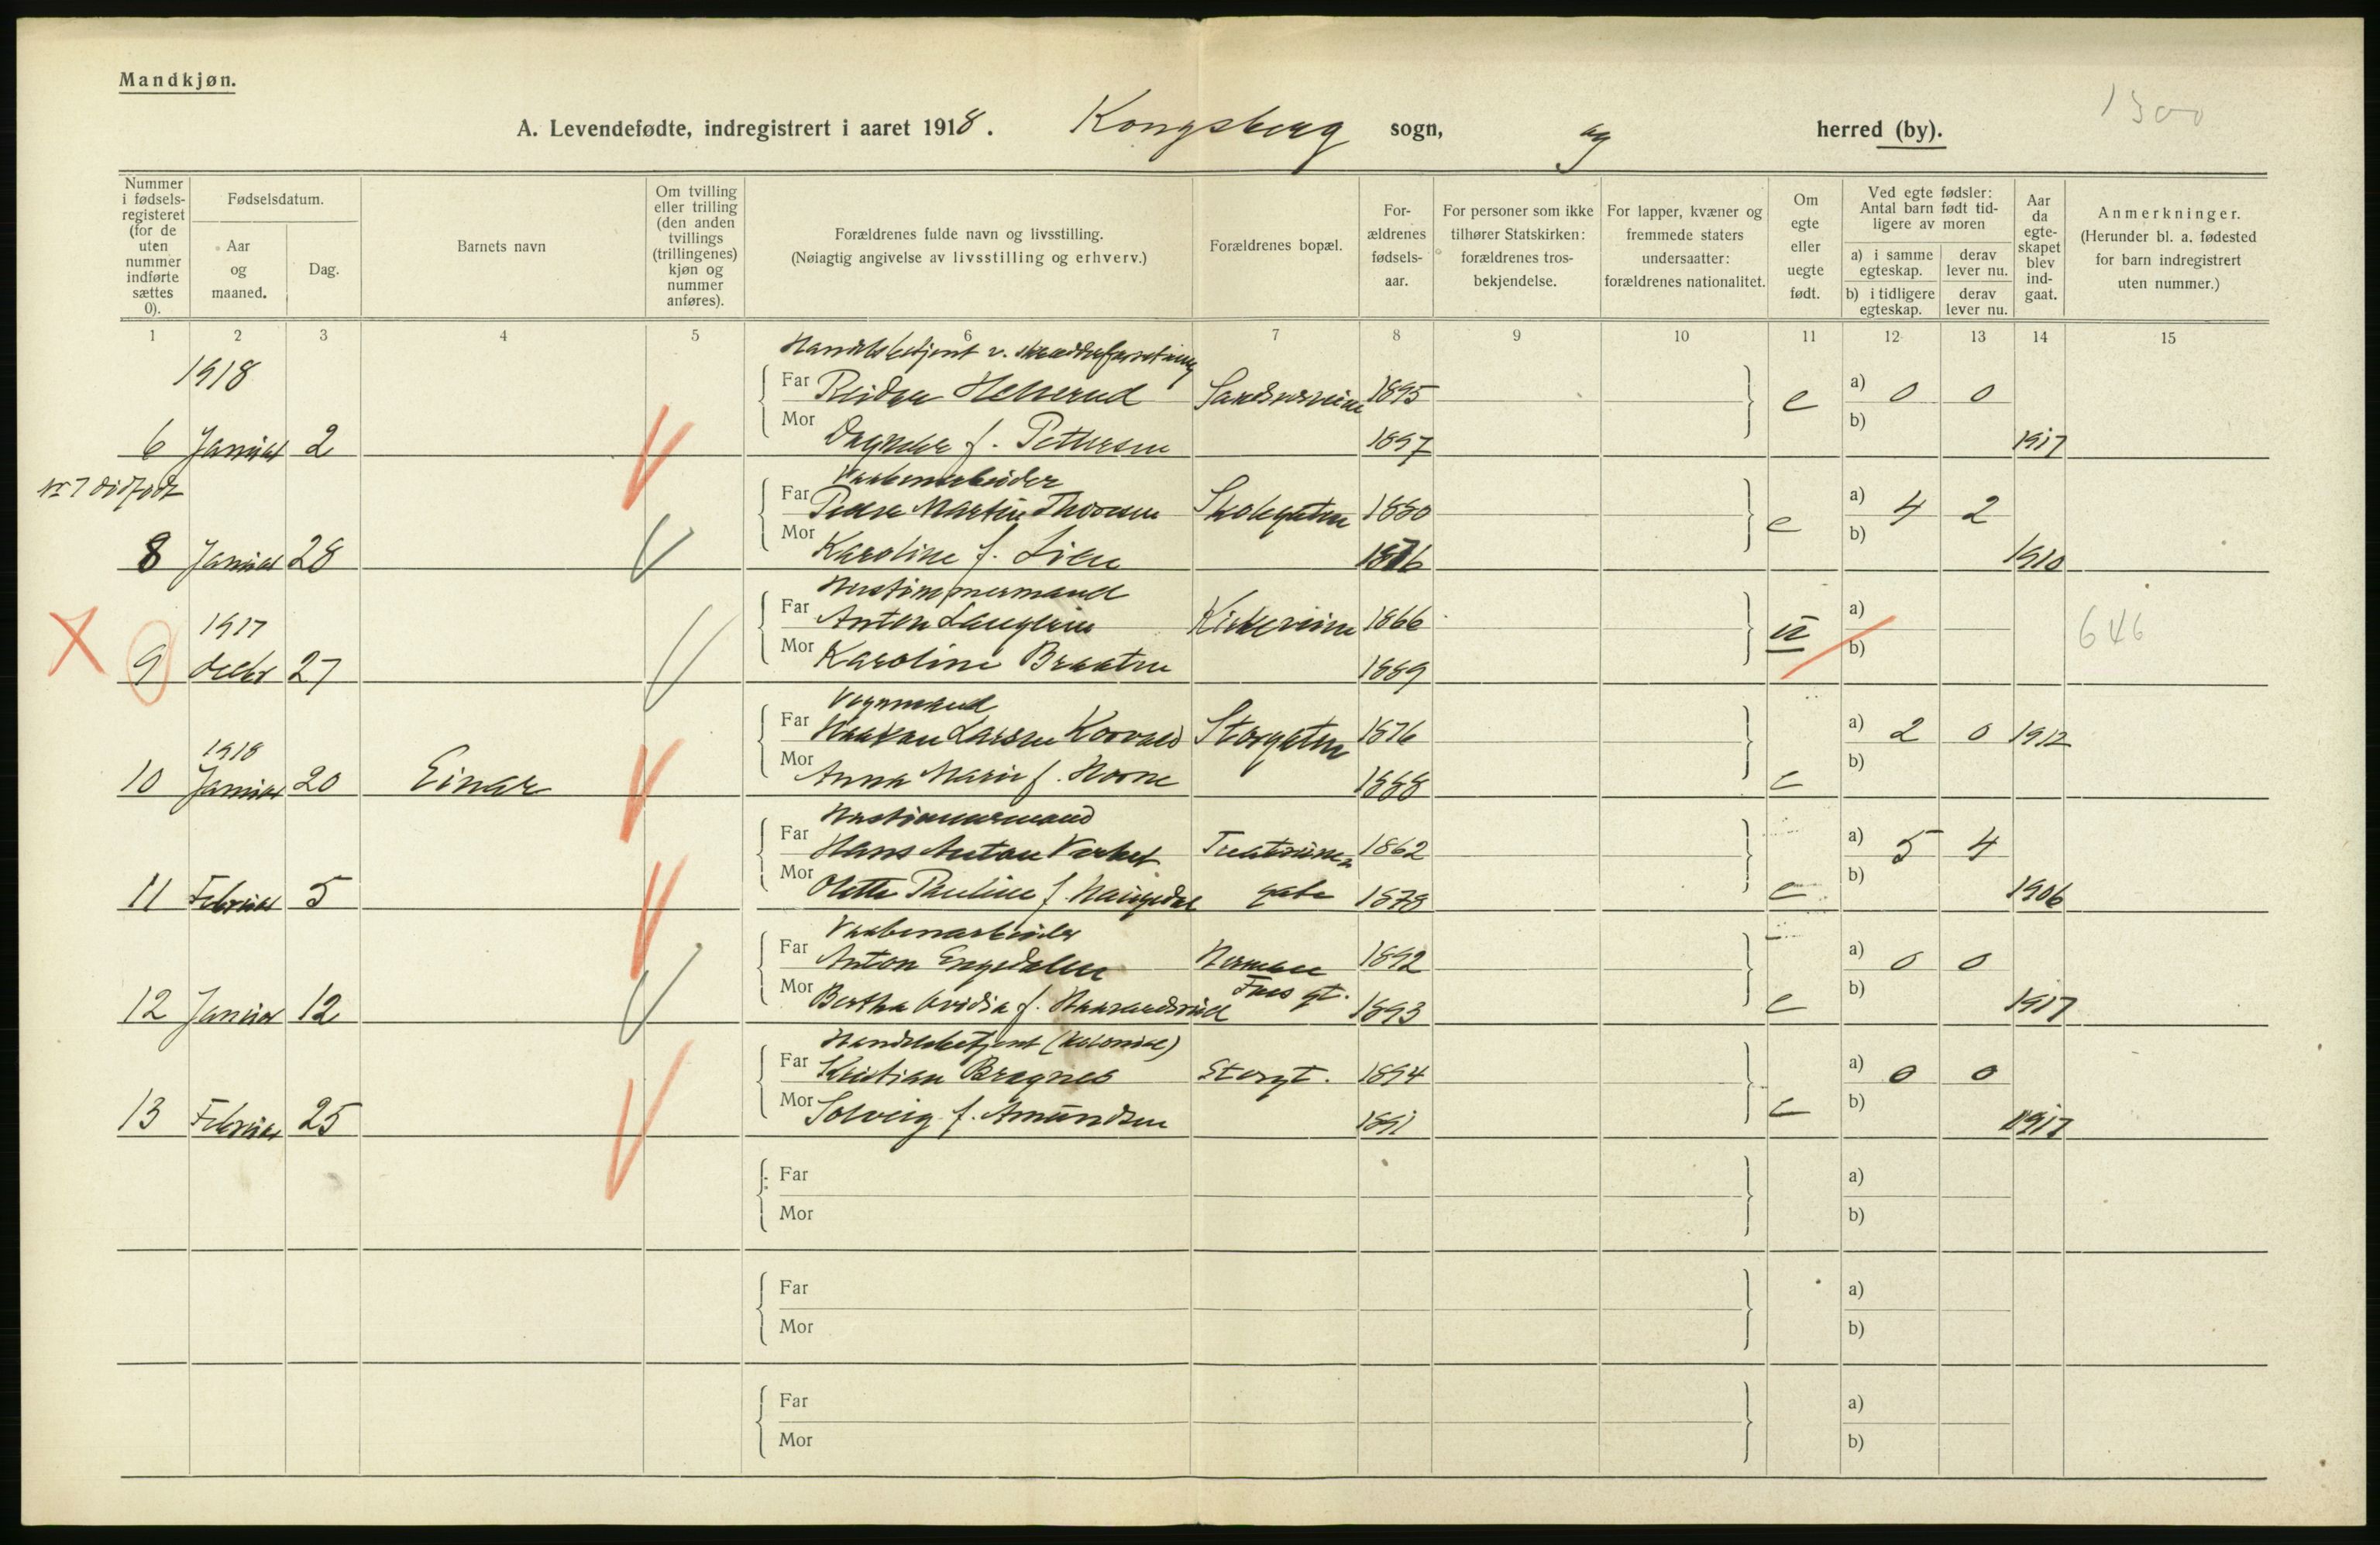 Mandkjøn.
A. Levendefødte, indregistrert i aaret 1918. Kongsberg sogn, og herred (by).
1300
Nummer i fødselsregisteret (for de uten nummer indførte sættes 0).
Fødselsdatum.
Aar og maaned.
Dag.
Barnets navn
Om tvilling eller trilling (den anden tvillings (trillingenes) kjøn og nummer anføres).
Forældrenes fulde navn og livsstilling.
(Nøiagtig angivelse av livsstilling og erhverv.)
Forældrenes bopæl.
Forældrenes fødselsaar.
For personer som ikke tilhører Statskirken: forældrenes trosbekjendelse.
For lapper, kvæner og fremmede staters undersaatter: forældrenes nationalitet.
Om egte eller uegte født.
Ved egte fødsler: Antal barn født tidligere av moren
a) i samme egteskap.
derav lever nu.
b) i tidligere egteskap.
derav lever nu.
Aar da egteskapet blev indgaat.
Anmerkninger.
(Herunder bl. a. fødested for barn indregistrert uten nummer.)
1 2 3 4 5 6 7 8 9 10 11 12 13 14 15
1918
Handelsbetjent v. skrædderforretning
Far Reidar Hellerud 1895 e a) 0 0
Mor f. Pettersen 1897 b) 1917
6 Januar 2
nr 7 dødfødt
Vaabenarbeider
Far Peder Martin Thorsen Skolegaten 1880 e a) 4 2
Mor Karoline f. Lien 1876 b) 1910
8 Januar 28
Hustømmermand
1917
Far Anton Kirkeveien 1866 u a)
Mor Karoline Braaten 1889 b)
646
9 Decbr 27
Vognmand
Far Haakan Larsen Storgaten 1876 a) 2 0 1912
1918
Mor Anna Marie f. 1888 e b)
10 Januar 20 Einar
Hustømmermand
Far Hans Anton 1862 a) 5 4
Mor Olette Pauline f. gate 1878 e b) 1906
11 Februar 5
Vaabenarbeider
Far Anton Engedalen Herman 1892 a) 0 0
Mor Bertha f. Foss gt. 1893 e b) 1917
12 Januar 12
Handelsbetjent (kolonial)
Far Kristian Bragnes Storgt. 1894 a) 0 0
Mor Solveig f. Amundsen 1891 e b) 1917
13 Februar 25
Far a)
Mor b)
Far a)
Mor b)
Far a)
Mor b)